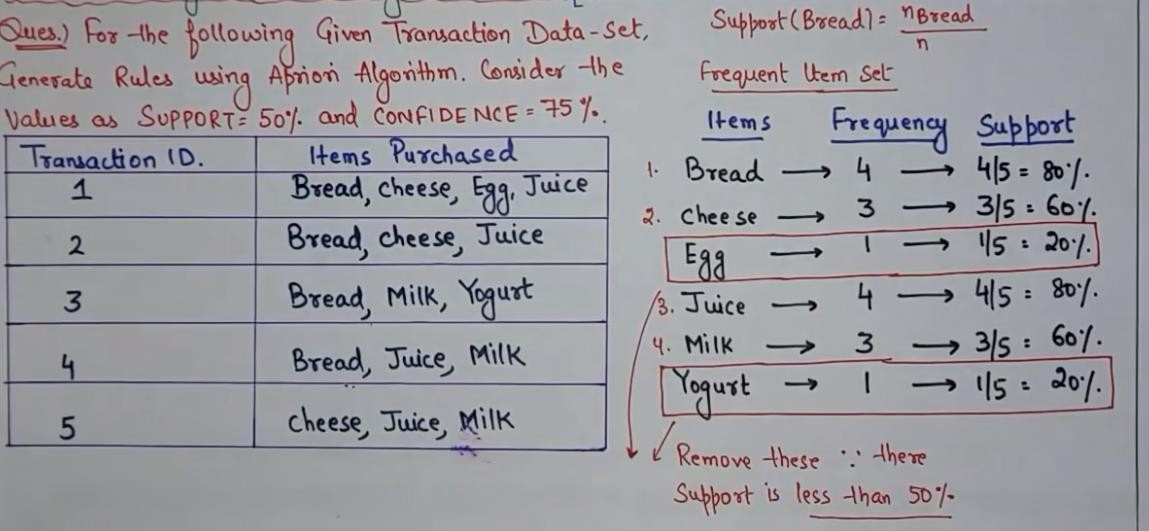 Ques.) For the following Given Transaction Data-set,
Generate Rules using Apriori Algorithm. Consider the
Values as SUPPORT= 50% and CONFIDENCE = 75%.
Transaction ID. Items Purchased
1 Bread, cheese, Egg, Juice
2 Bread, cheese, Juice
3 Bread, Milk, Yogurt
4 Bread, Juice, Milk
5 cheese, Juice, Milk
Support (Bread) = nBread
n
Frequent Item set
Items Frequency Support
1. Bread → 4 → 4/5 = 80%.
2. cheese → 3 → 3/5 = 60%.
Egg → 1 → 1/5 = 20%.
3. Juice → 4 → 4/5 = 80%.
4. Milk → 3 → 3/5 = 60%.
Yogurt → 1 → 1/5 = 20%.
Remove these ∵ there
Support is less than 50%.